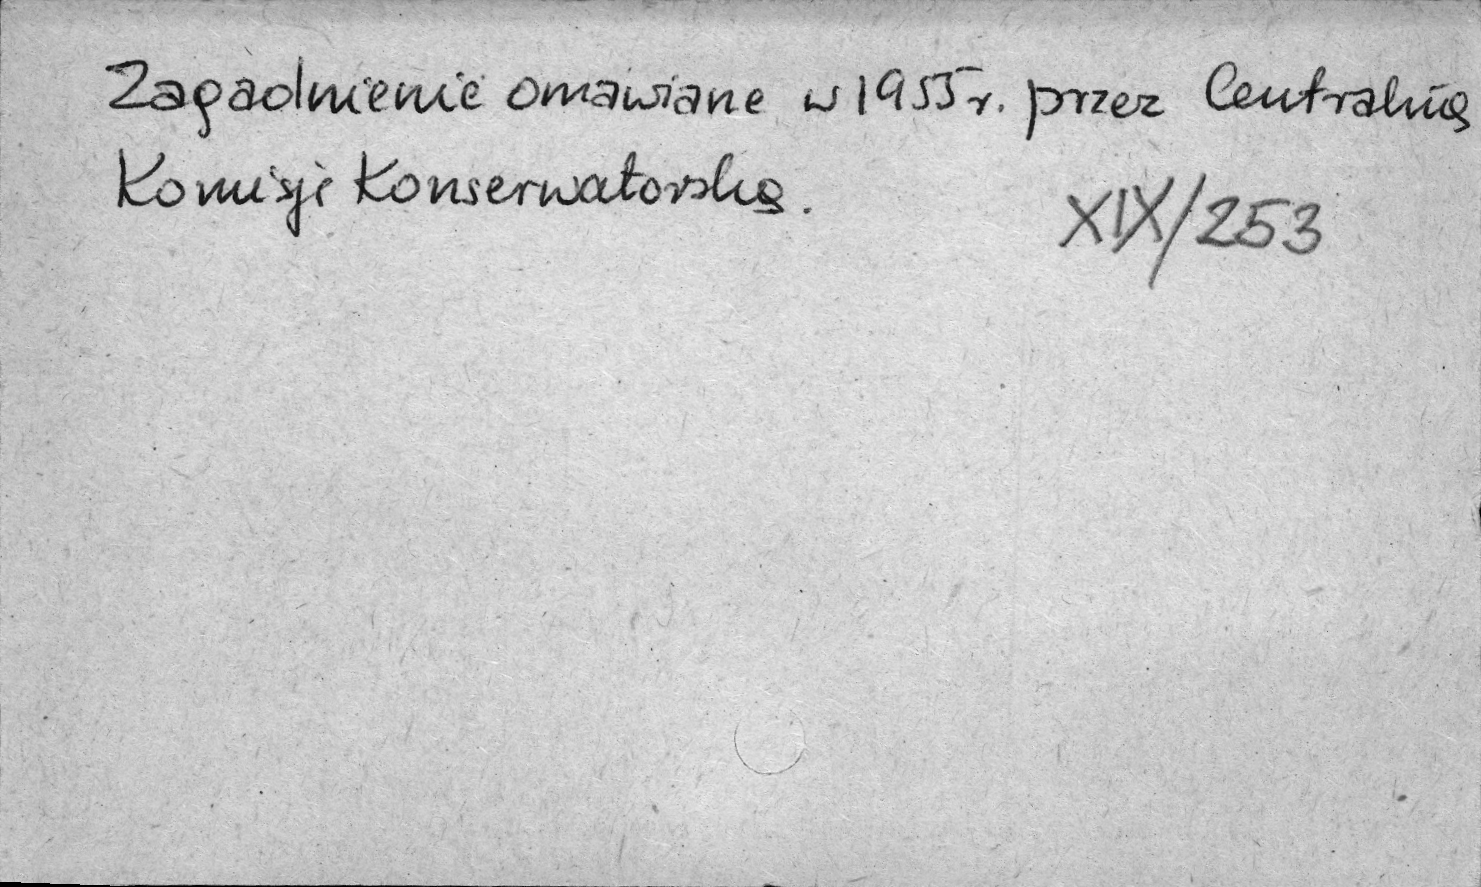 Zagadnienie omawiane w 1955 r. przez Centralną
Komisję Konserwatorską.
XIX/253